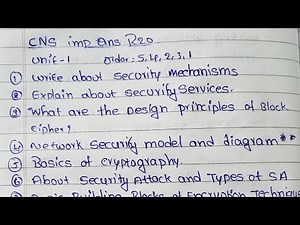 CNS imp Qns R20
Unit-1 order: 5,4,2,3,1
① Write about security mechanisms
② Explain about security services.
③ What are the Design principles of Block
cipher?
④ Network security model and diagram**
⑤ Basics of cryptography.
⑥ About Security Attack and Types of SA
Basic Building Blocks of Encryption Technique